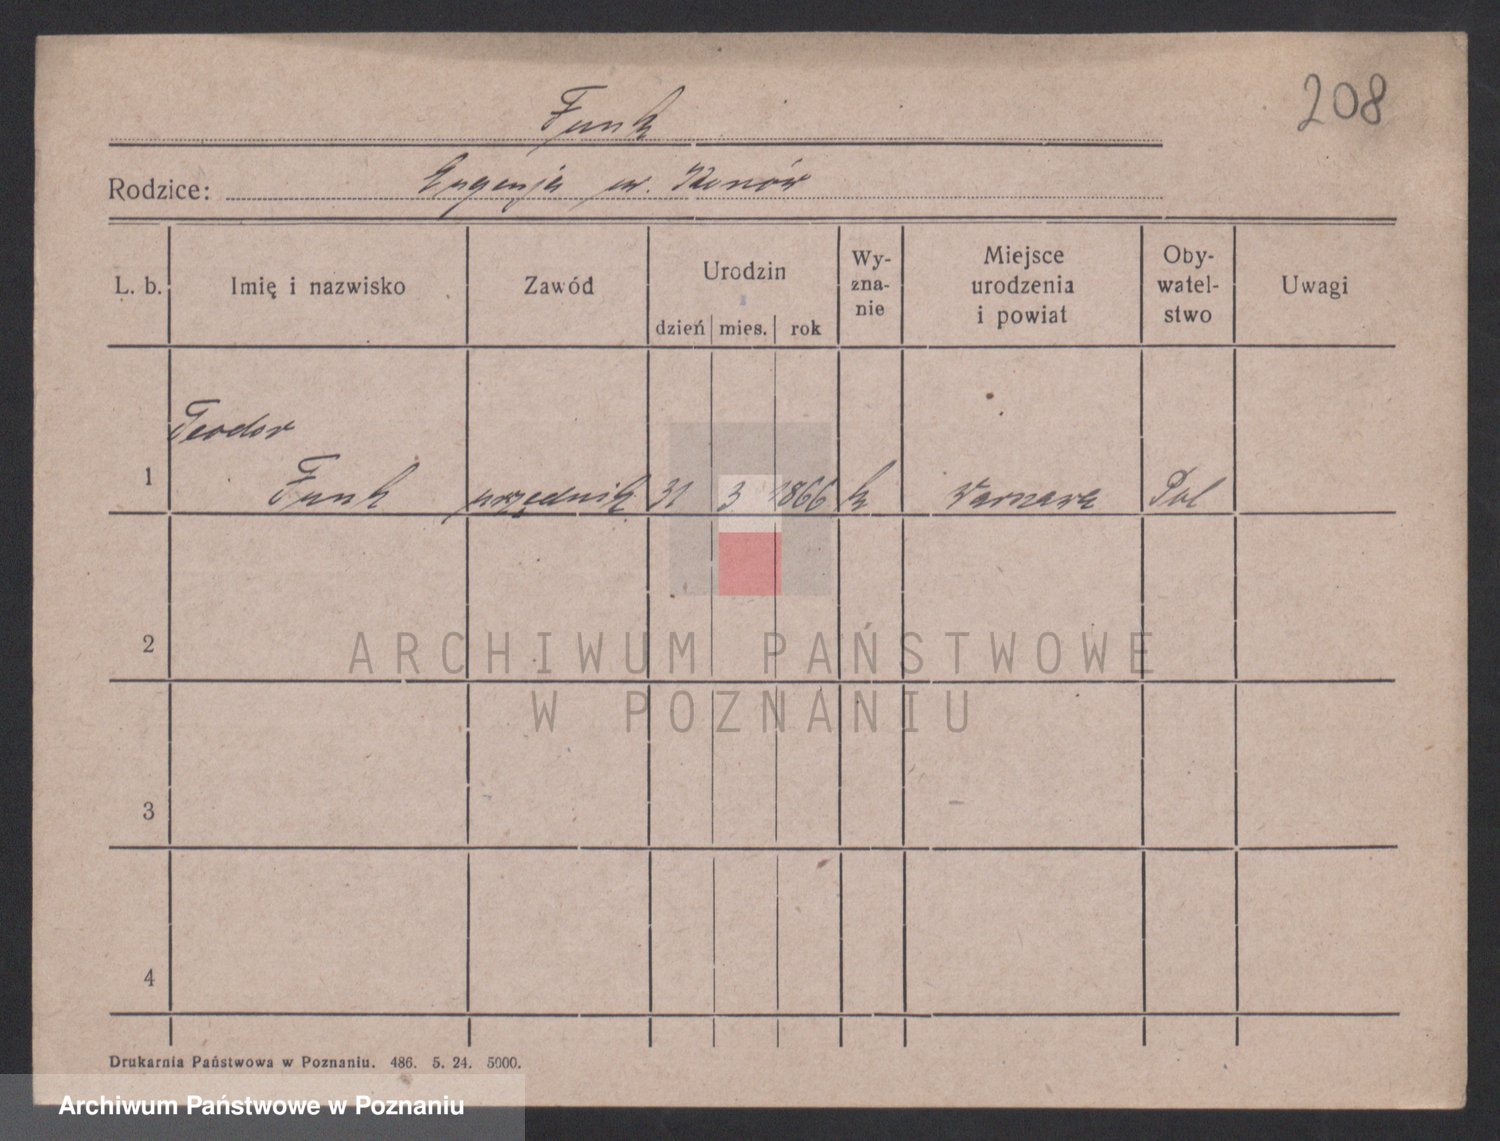 208
Funk
Rodzice: Eugenja
L. b. Imię i nazwisko Zawód Urodzin dzień mies. rok Wy-zna-nie Miejsce urodzenia i powiat Oby-watel-stwo Uwagi
Teodor
1 Funk urzędnik 31 3 1866 k Warszawa Pol
2
ARCHIWUM PAŃSTWOWE
W POZNANIU
3
4
Drukarnia Państwowa w Poznaniu. 486. 5. 24. 5000.
Archiwum Państwowe w Poznaniu